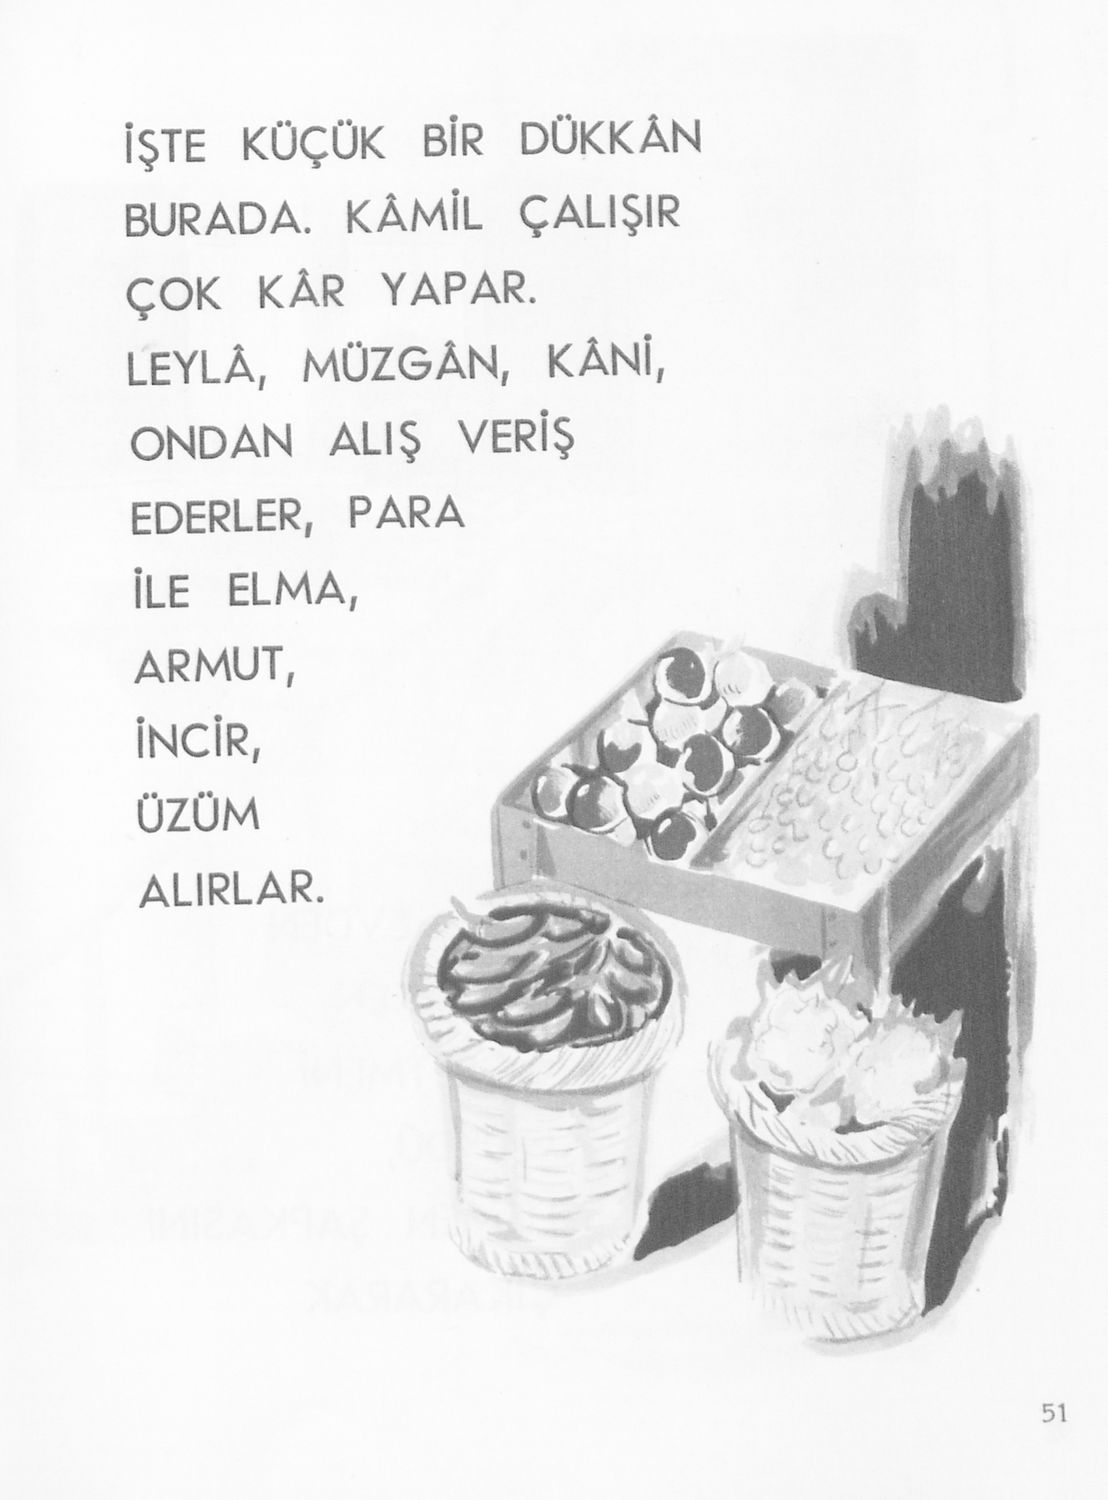 İŞTE KÜÇÜK BİR DÜKKÂN
BURADA. KÂMİL ÇALIŞIR
ÇOK KÂR YAPAR.
LEYLÂ, MÜZGÂN, KÂNİ,
ONDAN ALIŞ VERİŞ
EDERLER, PARA
İLE ELMA,
ARMUT,
İNCİR,
ÜZÜM
ALIRLAR.
51